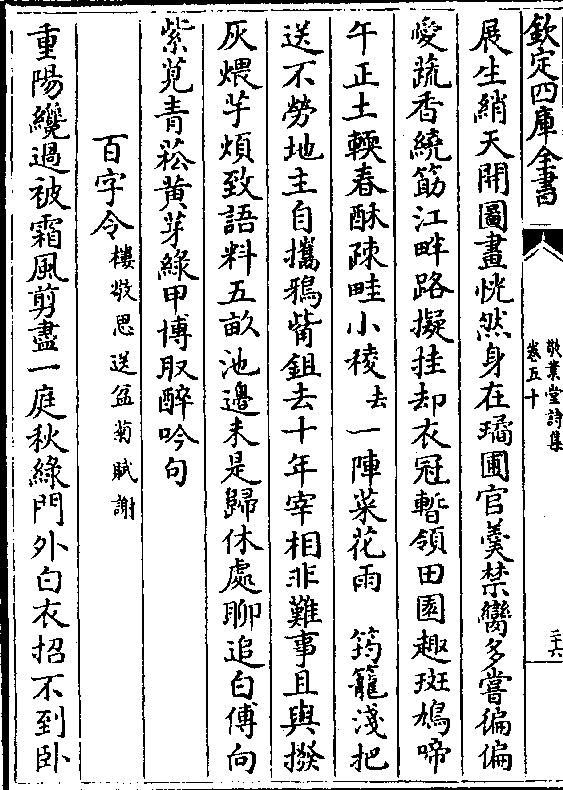 欽定四庫全書
敬業堂詩集
卷五十
三六
展生綃天開圖畫恍然身在璚圃官羮禁臠多嘗徧偏
愛蔬香繞筯江畔路擬挂却衣冠暫領田園趣斑鳩啼
午正土輭春酥疎畦小稜去一陣菜花雨　筠籠淺把
送不勞地主自攜鴉觜鉏去十年宰相非難事且與撥
灰煨芋煩致語料五畝池邊未是歸休處聊追白傅向
紫莧青菘黄芽綠甲博取醉吟句
百字令樓敬思送盆菊賦謝
重陽纔過被霜風剪盡一庭秋綠門外白衣招不到卧